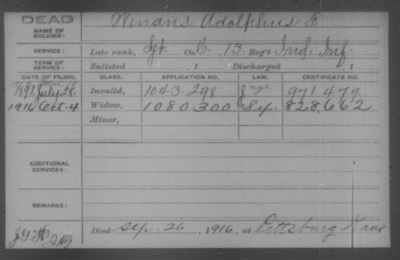 DEAD
NAME OF SOLDIER: Winans, Adolphus F.
SERVICE: Late rank, Sgt. Co. C, 13 Reg't Ind. Inf.
TERM OF SERVICE: Enlisted , 1 Discharged , 1
DATE OF FILING. CLASS. APPLICATION NO. LAW. CERTIFICATE NO.
1891 July 28. Invalid, 1043.298 971.479
1916 Oct. 4 Widow, 1080300 Sep. 828.662
Minor,
ADDITIONAL SERVICES:
REMARKS:
Died Sep. 26, 1916, at Pittsburg Kans